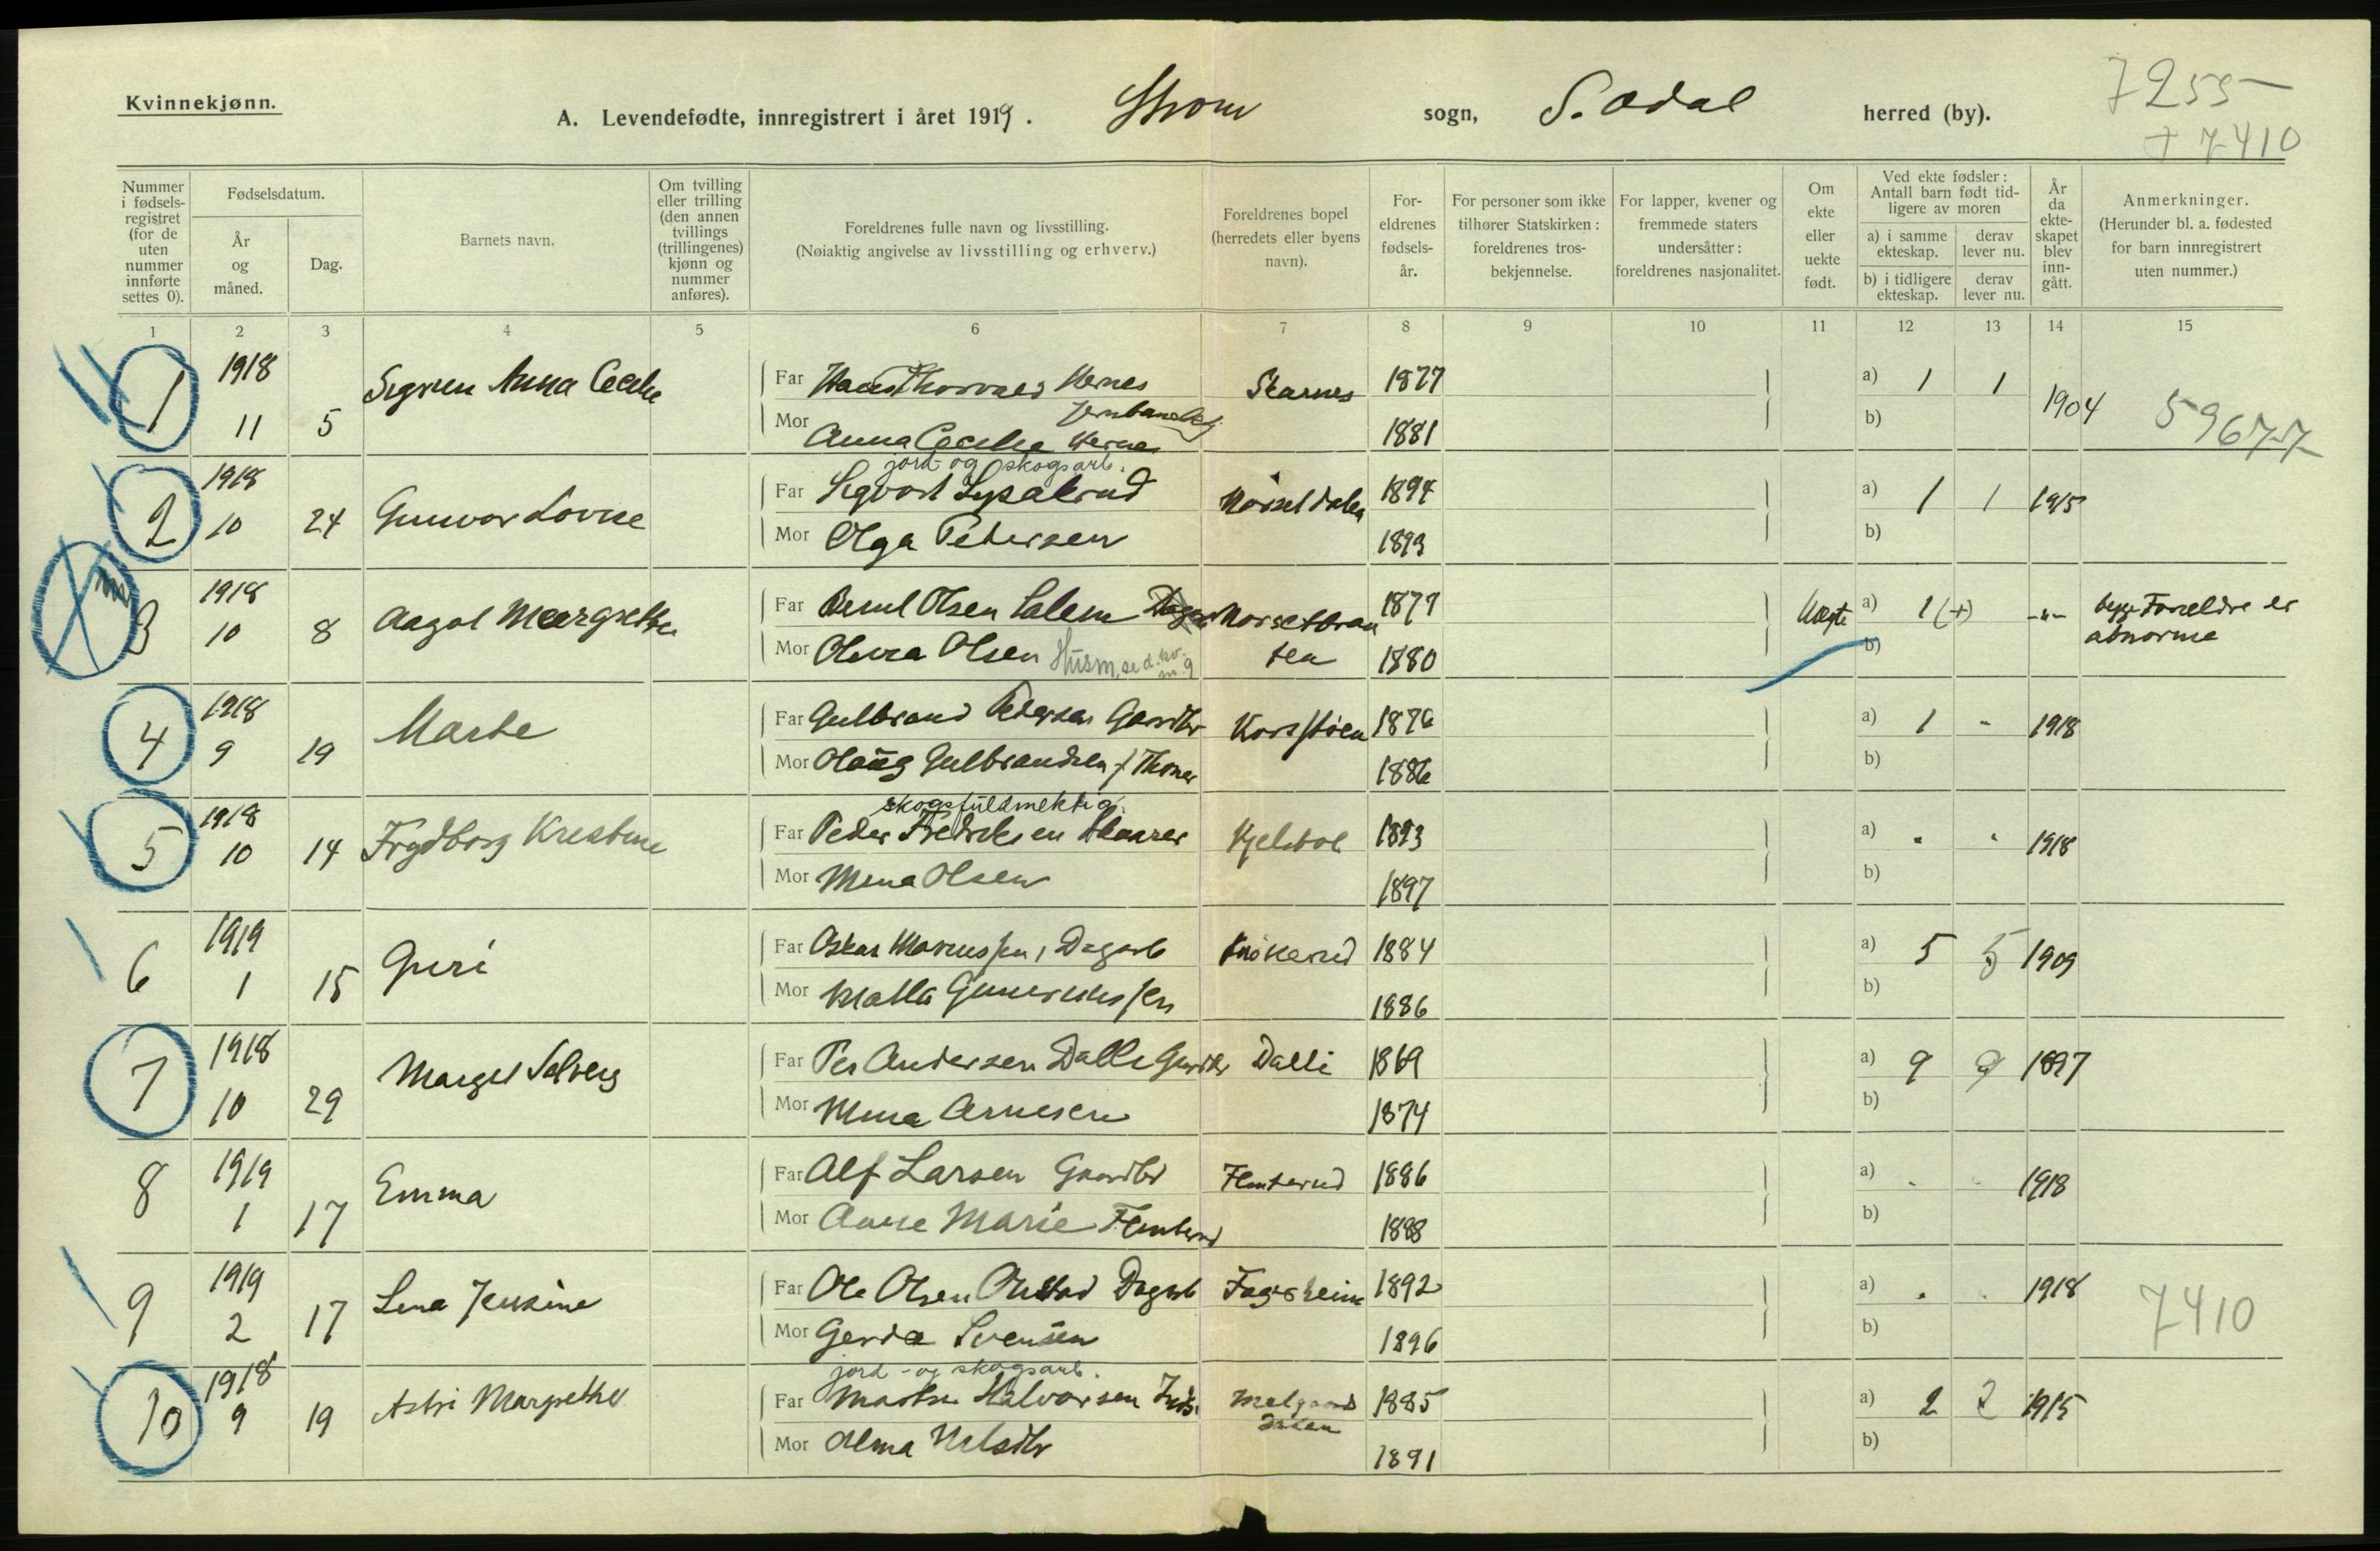 Kvinnekjønn.
A. Levendefødte, innregistrert i året 1919. Strøm sogn, S. Odal herred (by).
7255
+ 7410
Nummer i fødselsregistret (for de uten nummer innførte settes 0).
Fødselsdatum.
År og måned.
Dag.
Barnets navn.
Om tvilling eller trilling (den annen tvillings (trillingenes) kjønn og nummer anføres).
Foreldrenes fulle navn og livsstilling.
(Nøiaktig angivelse av livsstilling og erhverv.)
Foreldrenes bopel (herredets eller byens navn).
Foreldrenes fødselsår.
For personer som ikke tilhører Statskirken: foreldrenes trosbekjennelse.
For lapper, kvener og fremmede staters undersåtter: foreldrenes nasjonalitet.
Om ekte eller uekte født.
Ved ekte fødsler: Antall barn født tidligere av moren
a) i samme ekteskap.
derav lever nu.
b) i tidligere ekteskap.
derav lever nu.
År da ekteskapet blev inngått.
Anmerkninger.
(Herunder bl. a. fødested for barn innregistrert uten nummer.)
1 2 3 4 5 6 7 8 9 10 11 12 13 14 15
1 1918 11 5 Sigrun Anna Cecilie
Far Hans Thorvald Hernes Skarnes 1877 a) 1 1 1904
Mor Anna Cecilie Hernes 1881 b)
5967-7
jord- og skogsarb.
2 1918 10 24 Gunvor Lovise
Far Sigvart Lysakrud 1894 a) 1 1 1915
Mor Olga Petersen 1893 b)
3 1918 10 8 Aagot Margrethe
Far Bernt Olsen Salem 1879 Uegte a) 1 (+) -"- begge Foreldre er
Mor Olivia Olsen Husm. 1880 b) abnorme
4 1918 9 19 Marte
Far Gulbrand Pedersen Gaardbr 1876 a) 1 - 1918
Mor Olaug Gulbrandsen f. Thoner 1886 b)
skogsfuldmektig.
5 1918 10 14 Frydborg Kristine
Far Peder Fredriksen 1893 a) . . 1918
Mor Mina Olsen 1897 b)
6 1919 1 15 Guri
Far Oskar Marenssen, Dagarb 1884 a) 5 5 1909
Mor Matla 1886 b)
7 1918 10 29 Margit Solveig
Far Per Andersen Dalli Gaardbr Dalli 1869 a) 9 9 1897
Mor Mina Arnesen 1874 b)
8 1919 1 17 Emma
Far Alf Larsen Gaardbr Flenterud 1886 a) . . 1918
Mor Anne Marie Flenterud 1888 b)
9 1919 2 17 Lina Jensine
Far Ole Olsen Dagarb Fagerheim 1892 a) . . 1918
Mor Gerda Svensen 1896 b)
7410
jord- og skogsarb.
10 1918 9 19 Astri Margrethe
Far Martin Halvorsen 1885 a) 2 2 1915
Mor Alma 1891 b)